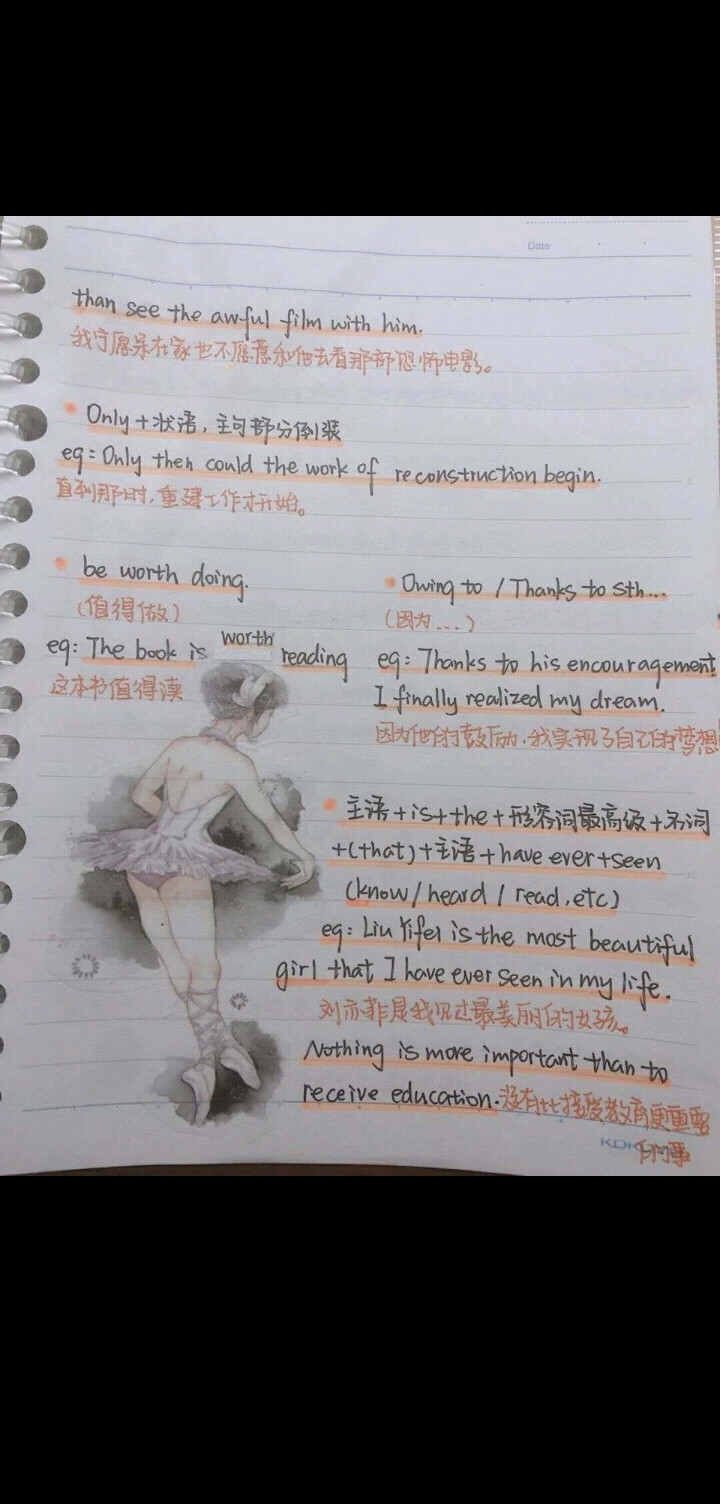 Date
than see the awful film with him.
我宁愿呆在家也不愿意和他去看那部恐怖电影。
Only+状语，主句部分倒装
eg:Only then could the work of reconstruction begin.
直到那时，重建工作才开始。
be worth doing.
(值得做)
eg: The book is worth reading
这本书值得读
Owing to / Thanks to sth...
(因为...)
eg: Thanks to his encouragement
I finally realized my dream.
因为他的鼓励，我实现了自己的梦想
主语+is+the+形容词最高级+名词
+(that)+主语+have ever+seen
(know/heard/read,etc)
eg: Liu Yifei is the most beautiful
girl that I have ever seen in my life.
刘亦菲是我见过最美丽的女孩。
Nothing is more important than to
receive education.没有比接受教育更重要
的事
KDK